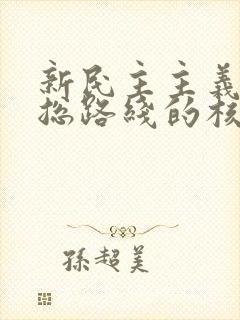 新民主主義
总路綫的核
孫超美